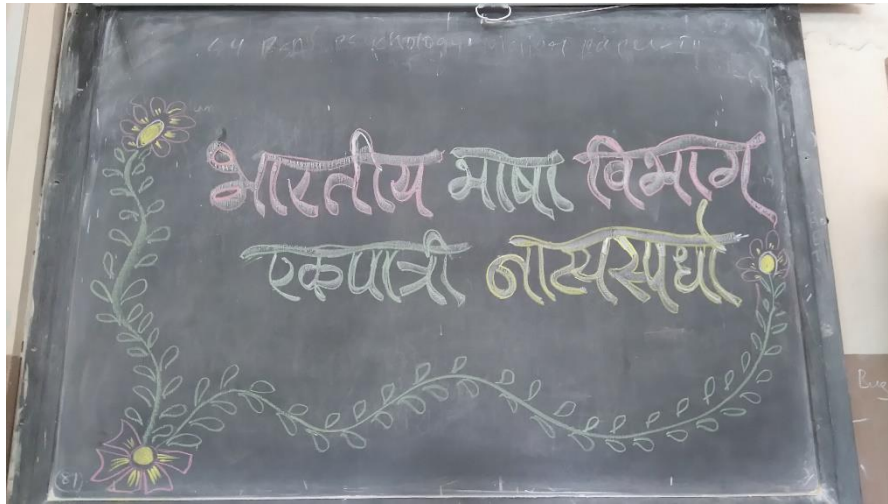 भारतीय भाषा विभाग
एकपात्री नाट्यस्पर्धा